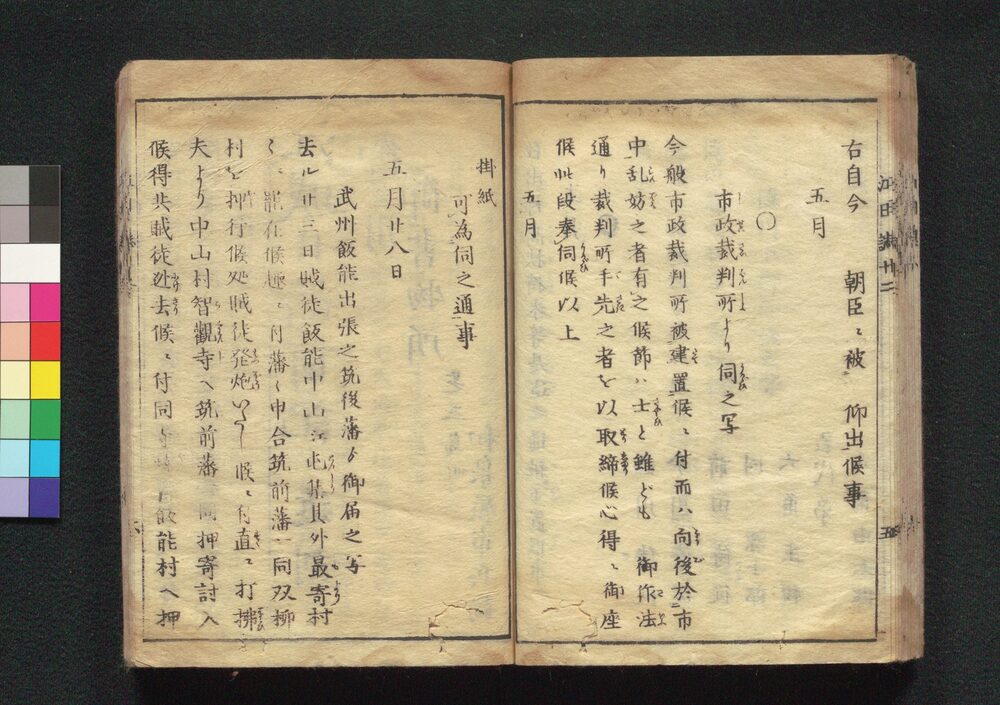 右自今 朝臣ニ被 仰出候事
五月
○
市政裁判所より伺之写
今般市政裁判所被建置候ニ付而ハ向後於市
中乱妨之者有之候節ハ士と雖ども御作法
通り裁判所手先之者を以取締候心得ニ御座
候此段奉伺候以上
五月
掛紙
可為伺之通事
五月廿八日
武州飯能出張之筑後藩ゟ御届之写
去ル廿三日賊徒飯能中山江屯集其外最寄村
々ニ罷在候趣ニ付藩々申合筑前藩一同双柳
村を押行候処賊徒発炮いたし候ニ付直ニ打拂
夫より中山村智觀寺へ筑前藩同押寄討入
候得共賊徒迯去候ニ付同飯能村へ押